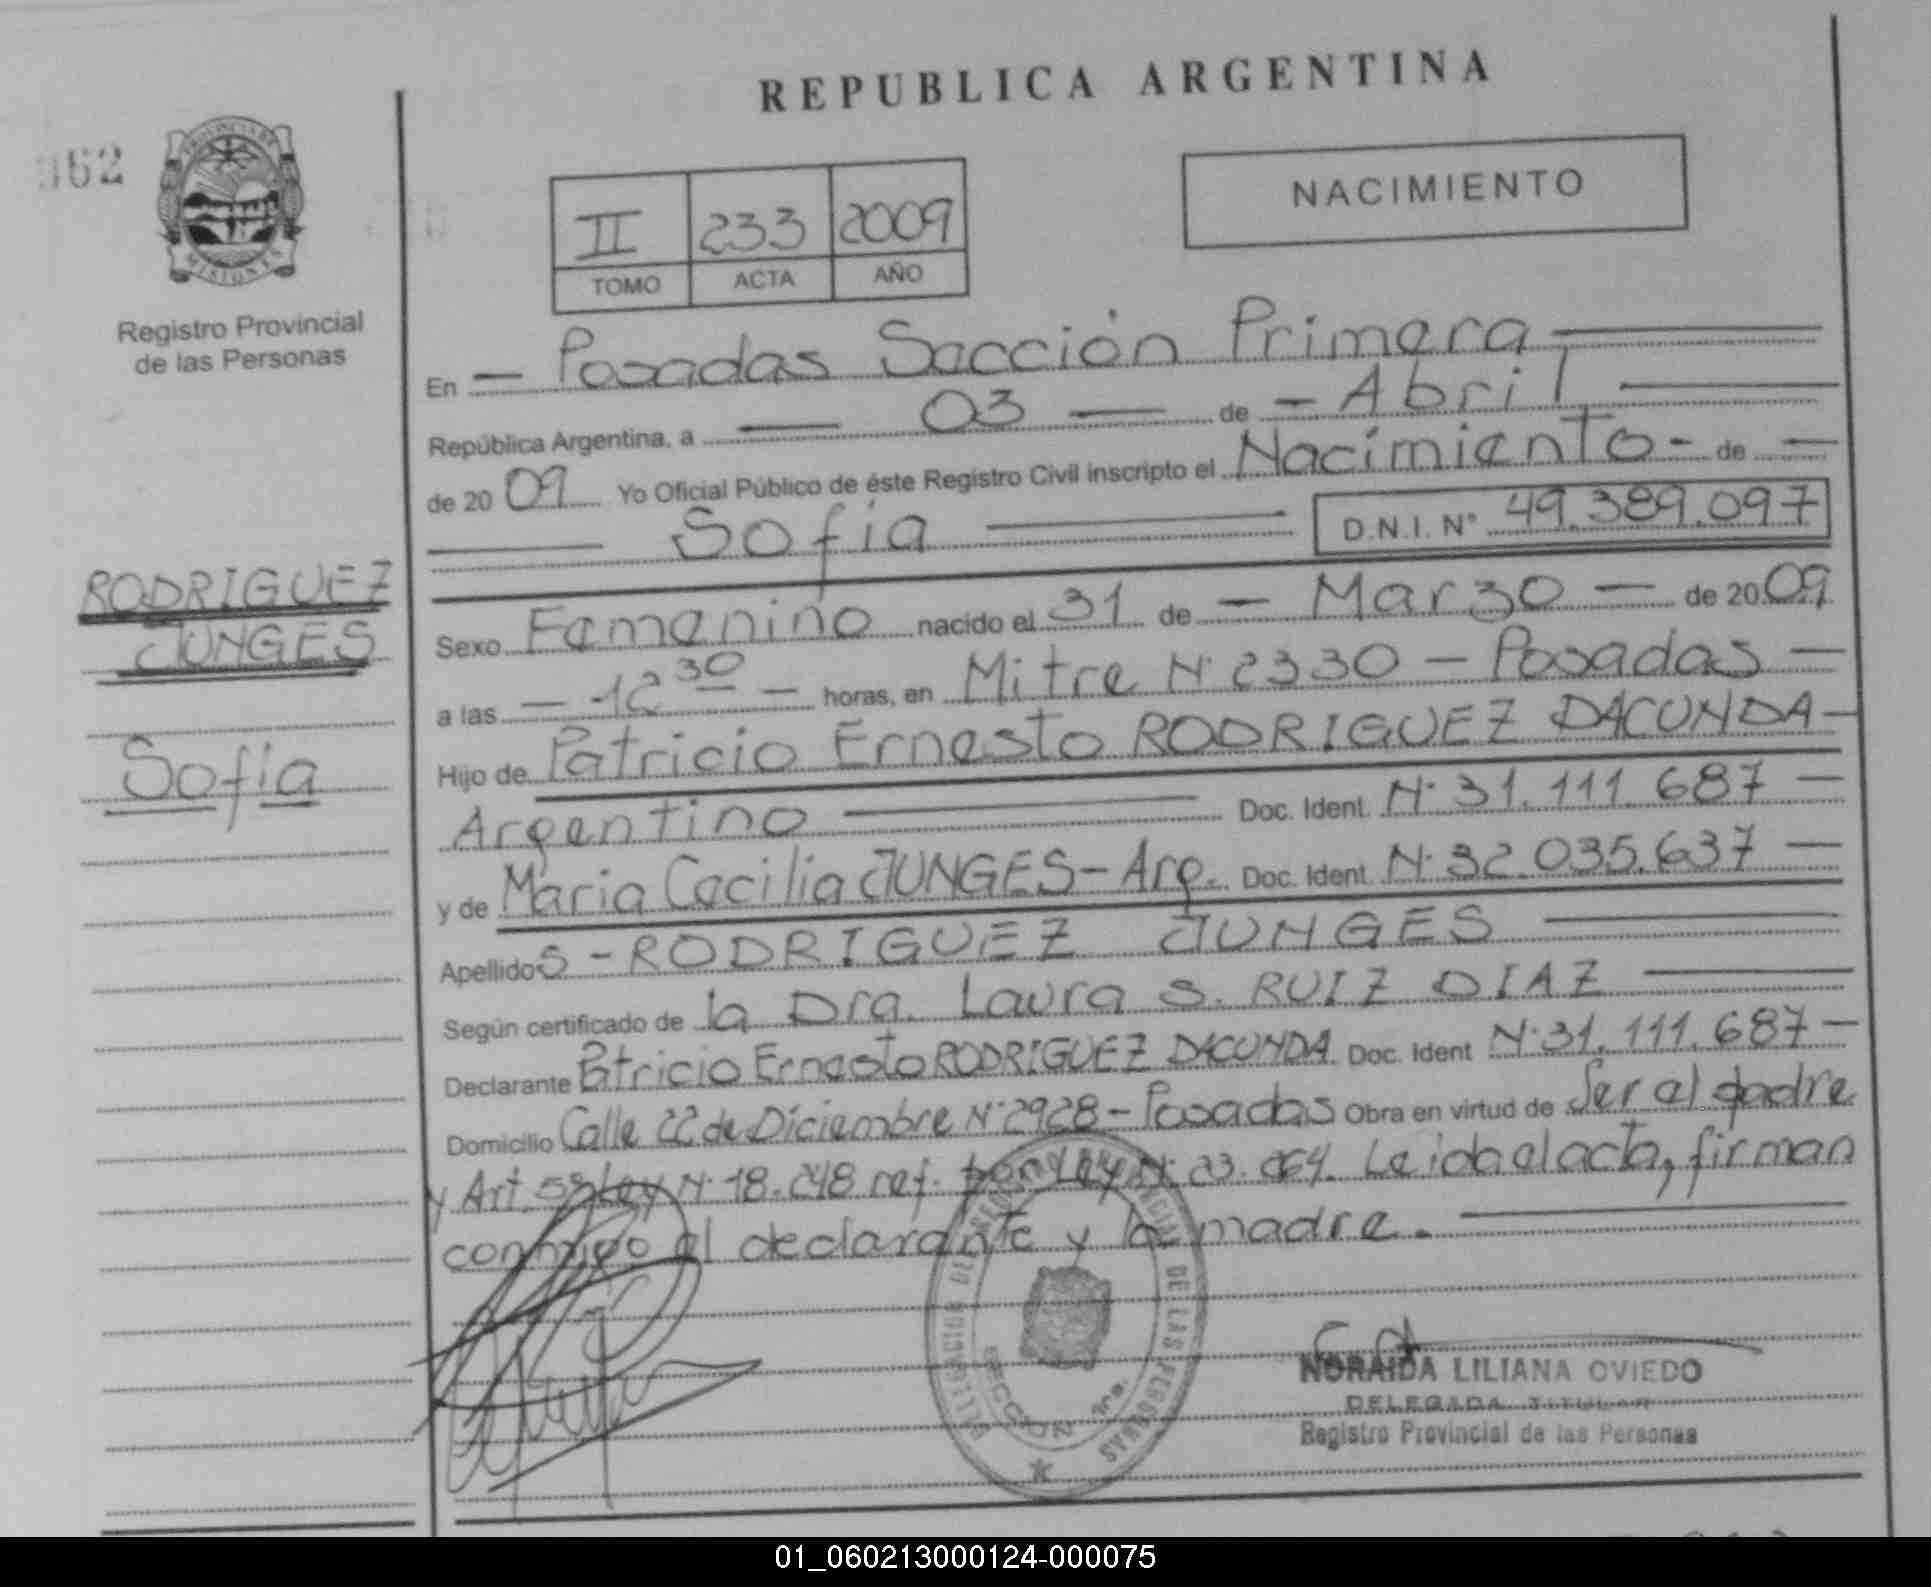 REPUBLICA ARGENTINA
362
PROVINCIA DE
MISIONES
Registro Provincial
de las Personas
NACIMIENTO
II 233 2009
TOMO ACTA AÑO
En — Posadas Sección Primera
República Argentina, a — 03 — de — Abril
de 2009 Yo Oficial Público de éste Registro Civil inscripto el Nacimiento - de —
Sofía D.N.I. N° 49.389.097
RODRIGUEZ
JUNGES
Sofía
Sexo Femenino nacido el 31 de — Marzo — de 2009
a las — 12 30 — horas, en Mitre N° 2330 — Posadas —
Hijo de Patricio Ernesto RODRIGUEZ DACUNDA —
Argentino Doc. Ident. N° 31.111.687 —
y de Maria Cecilia JUNGES - Arg. Doc. Ident. N° 32.035.637 —
Apellidos - RODRIGUEZ JUNGES
Según certificado de la Dra. Laura S. RUIZ DIAZ
Declarante Patricio Ernesto RODRIGUEZ DACUNDA Doc. Ident N° 31.111.687 —
Domicilio Calle 22 de Diciembre N° 2928 - Posadas Obra en virtud de Ser el padre
y Art. 5º Ley N° 18.248 ref. por Ley N° 23.264. Leida el acta, firman
conmigo el declarante y la madre.
REGISTRO PROVINCIAL DE LAS PERSONAS
SECCION 1ra.
NORAIDA LILIANA OVIEDO
DELEGADA TITULAR
Registro Provincial de las Personas
01_060213000124-000075